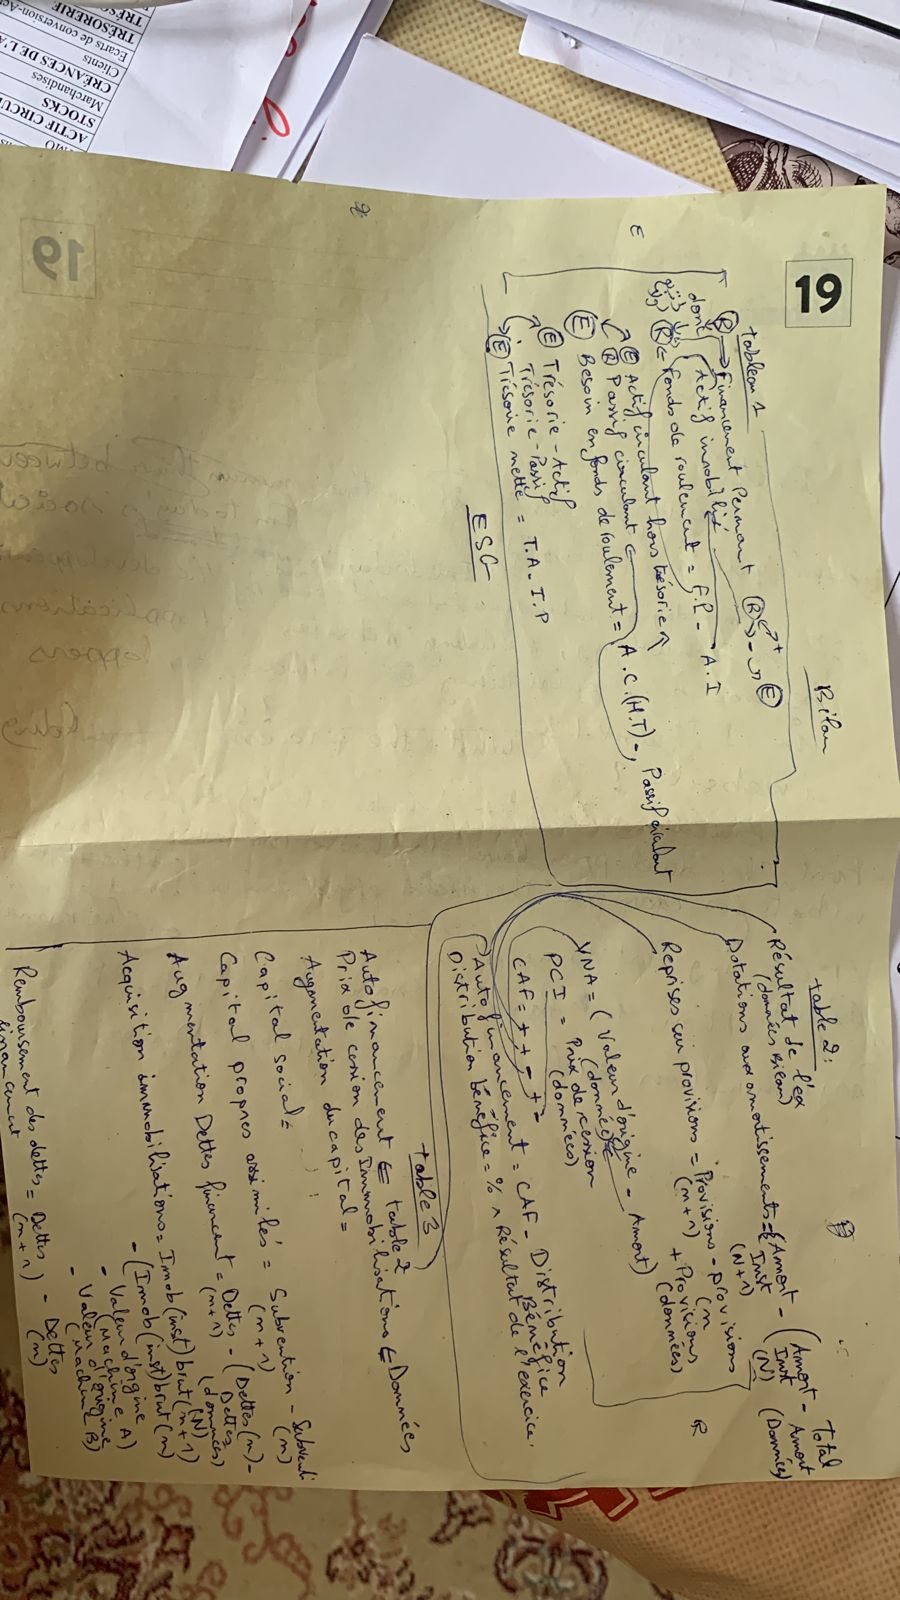 19
Bilan
tableau 1
R → Financement Permant R + - E
dont Actif immobilisé
R Fonds de roulement = F.P - A.I
E Actif circulant hors trésorie
R Passif circulant
E Besoin en fonds de roulement = A.C.(H.T) - Passif circulant
E
E Trésorie - Actif
Trésorie - Passif
E Trésorie nette = T.A - T.P
ESG
table 2:
Résultat de l'ex
(données Bilan)
Dotations aux amortissements = Amort - (Amort - Total
Inst Inst Amort
(N+1) (N) (Données)
Reprises sur provisions = Provisions - provisions
(n+1) (n
+ Provisions
(données)
R
VNA = (Valeur d'origine - Amort)
(données)
PCI = Prix de cession
(données)
CAF = + + - + -
Autofinancement = CAF - Distribution
Bénéfice
Distribution bénéfice = % x Résultat de l'exercice.
table 3
Autofinancement ← table 2
Prix de cession des Immobilisations ← Données
Augmentation du capital =
Capital social =
Capital propres assimilés = Subvention - Subventi
(n+1) (n)
Augmentation Dettes financent = Dettes - (Dettes (n) -
(n+1) Dettes
(données)
(N)
Acquisition immobilisations = Imob (inst) brut (n+1)
- (Imob (inst) brut (n)
- Valeur d'origine
(Machine A)
- Valeur d'origine
(Machine B)
Remboursement des dettes = Dettes - Dettes
financent (n+1) (n)
19
ACTIF CIRCU
STOCKS
Marchandises
CRÉANCES DE L'A
Clients
Ecarts de conversion-Ac
TRÉSORERIE